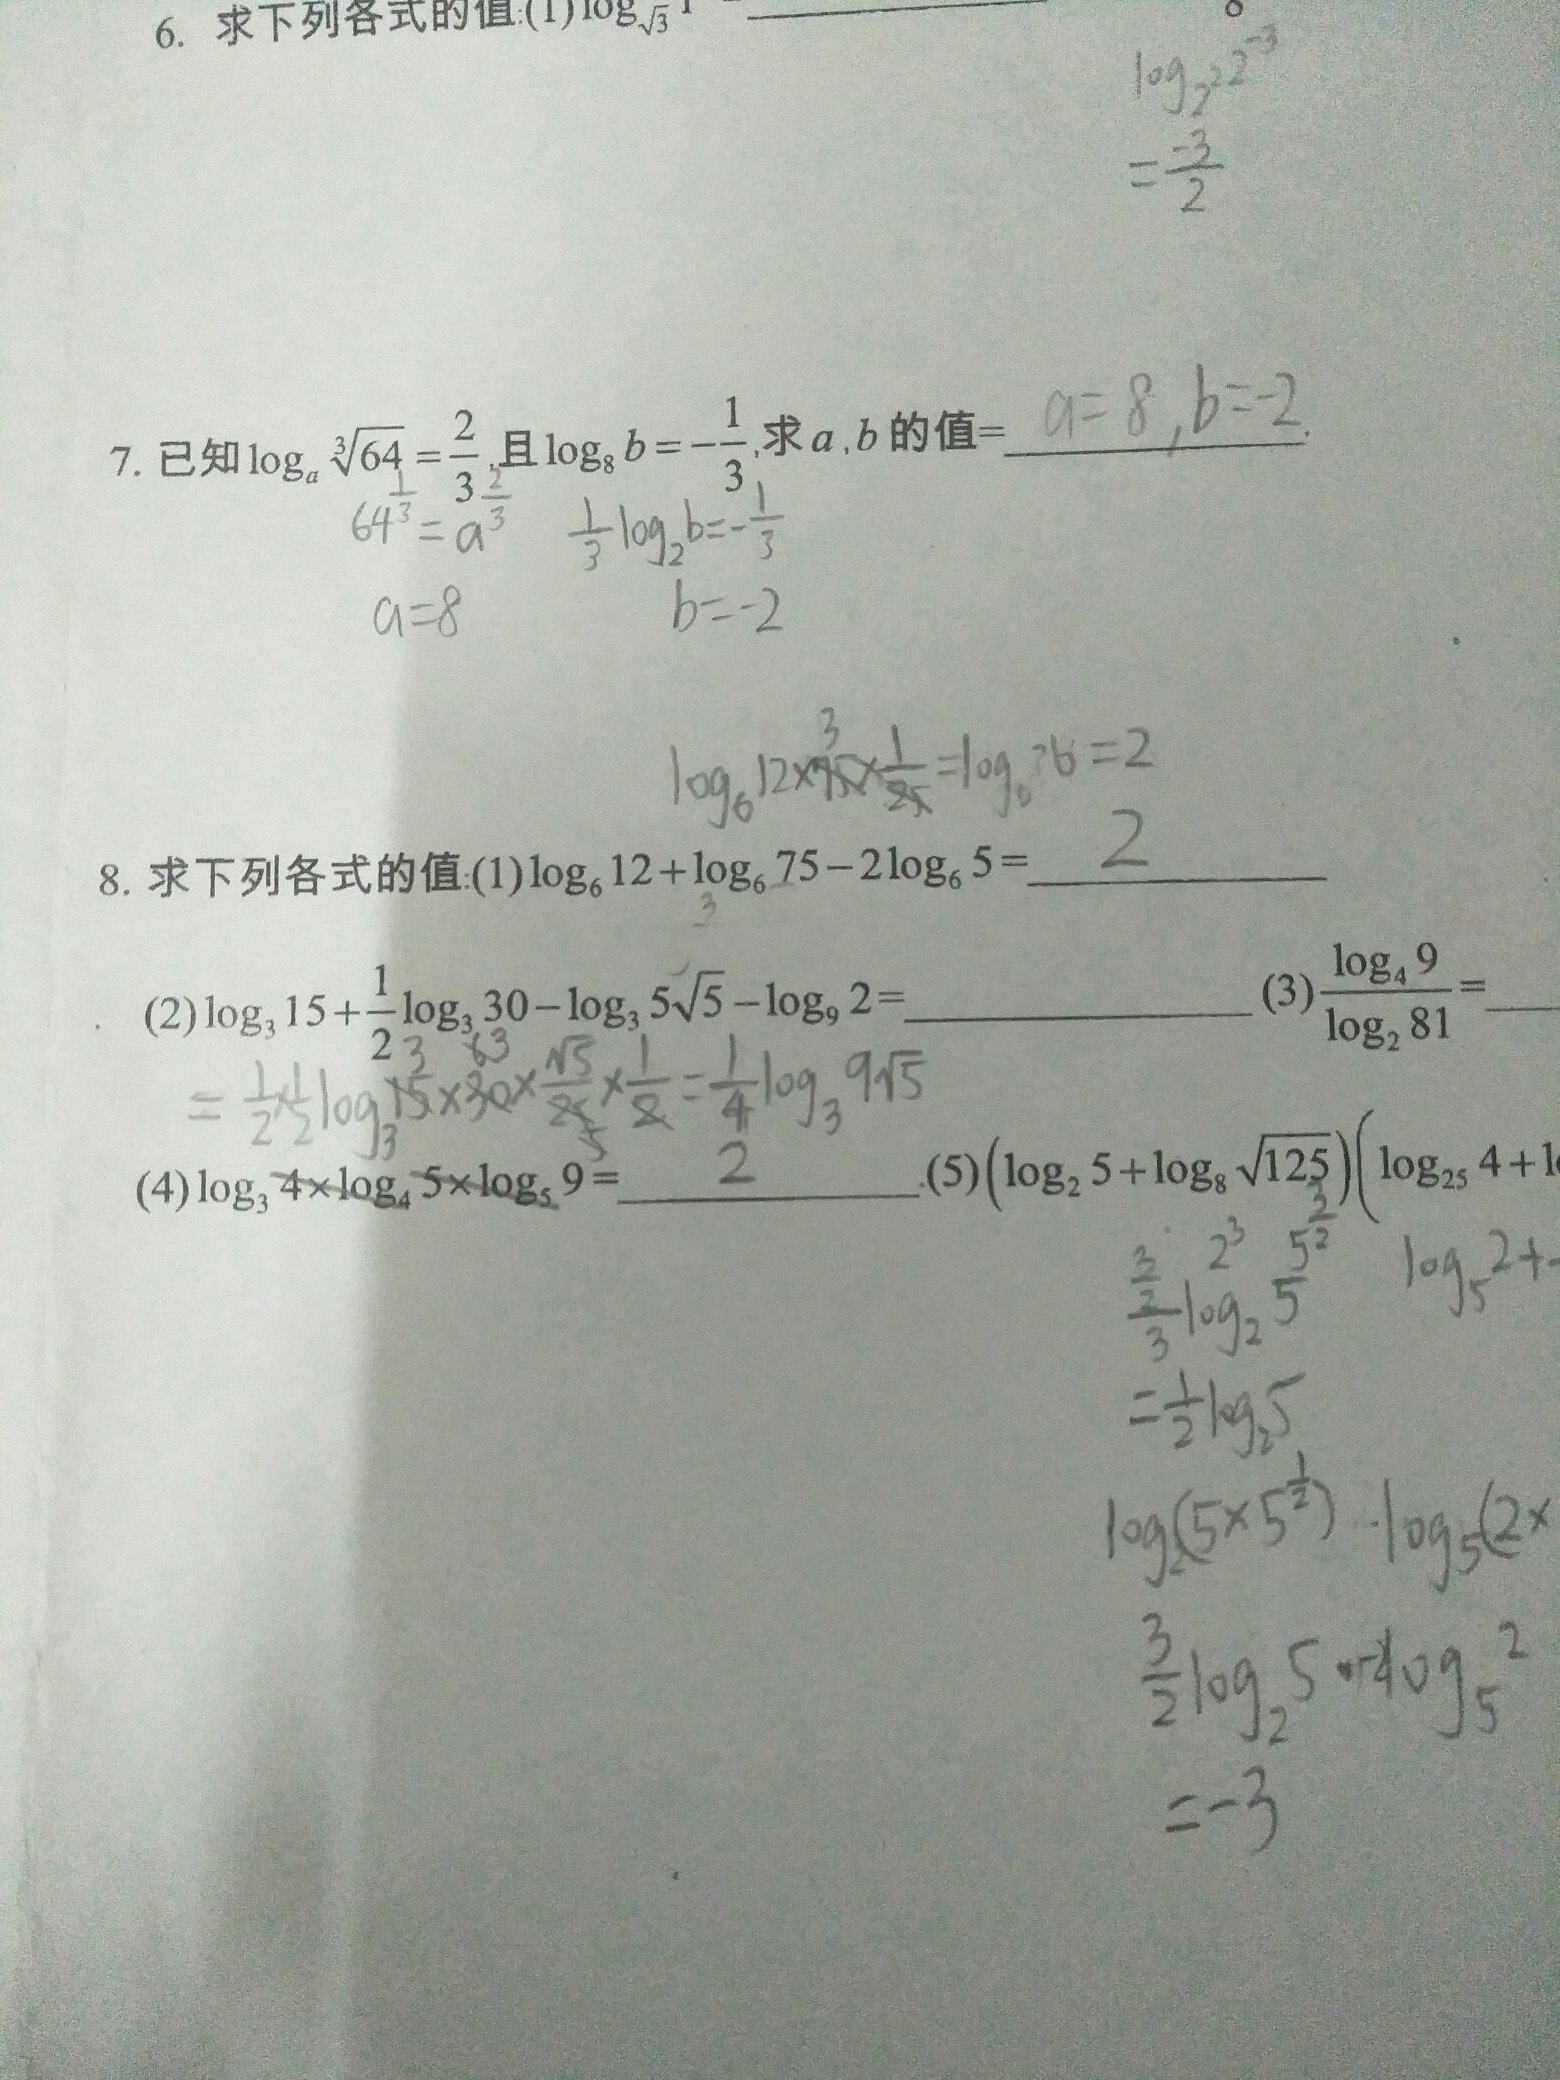 6. 求下列各式的值:(1)log_√3 1 =
log_2² 2^-3
= -3/2
7. 已知log_a ∛64 = 2/3,且log_8 b = -1/3,求a,b的值= a=8,b=-2.
64^1/3 = a^2/3 1/3 log_2 b = -1/3
a=8 b=-2
log_6 12×75×1/25 = log_6 36 = 2
3
8. 求下列各式的值:(1)log_6 12+log_6 75-2log_6 5= 2
3
(2)log_3 15+1/2 log_3 30-log_3 5√5-log_9 2= (3) log_4 9 / log_2 81 =
= 1/2 × 1/2 log_3 15×30×√5/25×1/2 = 1/4 log_3 9√5
(4)log_3 4×log_4 5×log_5 9= 2 .(5)(log_2 5+log_8 √125)(log_25 4+
2^3 5^3/2 log_5 2+
3/2 / 3 log_2 5
= 1/2 log_2 5
log_2(5×5^1/2) · log_5(2×
3/2 log_2 5 log_5 2
= -3